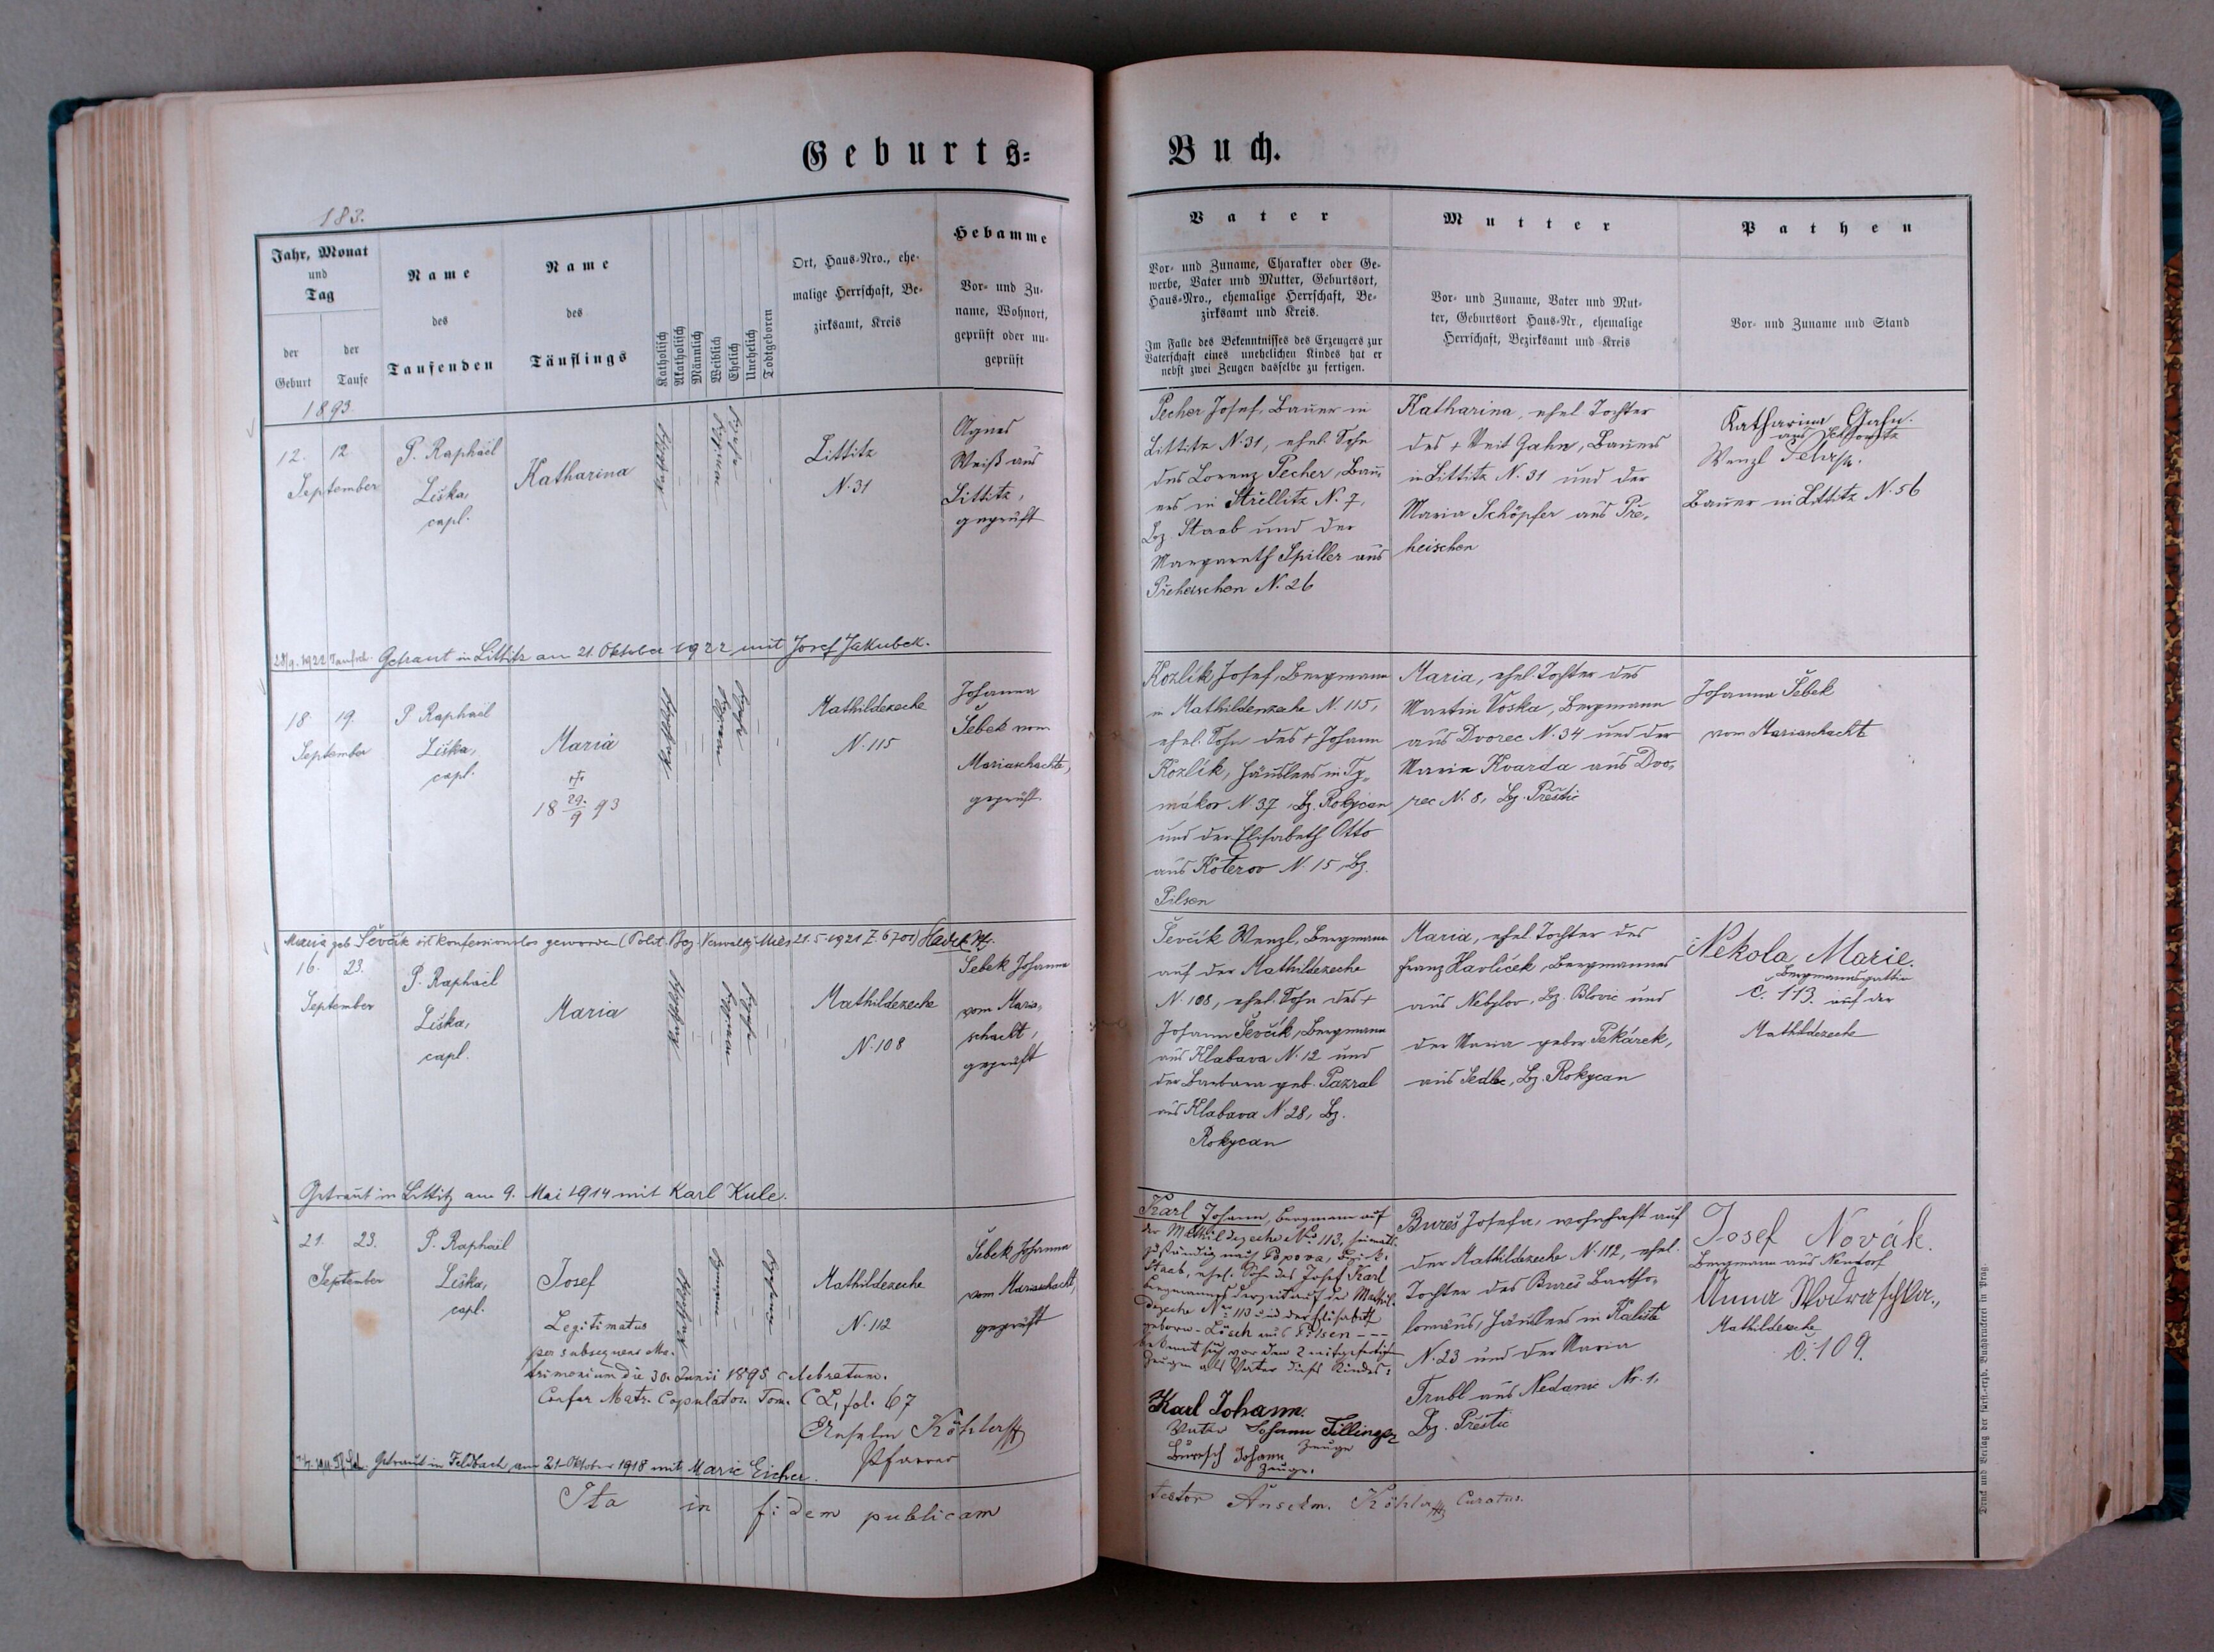 Geburts-
Buch.
183.
Jahr, Monat
und
Tag
der
Geburt
der
Taufe
Name
des
Taufenden
Name
des
Täuflings
Katholisch
Akatholisch
Männlich
Weiblich
Ehelich
Unehelich
Todtgeboren
Ort, Haus-Nro., ehe-
malige Herrschaft, Be-
zirksamt, Kreis
Hebamme
Vor- und Zu-
name, Wohnort,
geprüft oder un-
geprüft
Vater
Vor- und Zuname, Charakter oder Ge-
werbe, Vater und Mutter, Geburtsort,
Haus-Nro., ehemalige Herrschaft, Be-
zirksamt und Kreis.
Im Falle des Bekenntnisses des Erzeugers zur
Vaterschaft eines unehelichen Kindes hat er
nebst zwei Zeugen dasselbe zu fertigen.
Mutter
Vor- und Zuname, Vater und Mut-
ter, Geburtsort Haus-Nr., ehemalige
Herrschaft, Bezirksamt und Kreis
Pathen
Vor- und Zuname und Stand
1893.
12. 12.
September
P. Raphaël
Liška,
capl.
Katharina
Littitz
N. 31
Agnes
Weiß aus
Littitz,
geprüft
Pecher Josef, Bauer in
Littitz N. 31, ehel. Sohn
des Lorenz Pecher, Bau-
ers in Střellitz N. 7,
Bz. Staab und der
Margareth Spiller aus
Přeheischen N. 26
Katharina, ehel. Tochter
des + Veit Gahn, Bauers
in Littitz N. 31 und der
Maria Schöpfer aus Pře-
heischen
Katharina Gahn.
aus
Wenzl
Bauer in Littitz N. 56
28/9. 1922 Taufsch. Getraut in Littitz am 21. Oktober 1922 mit Josef Jakubek.
18. 19.
September
P. Raphaël
Liška,
capl.
Maria
18 29./9 93
Mathildezeche
N. 115
Johanna
Šebek vom
Mariaschachte,
geprüft.
Kozlík Josef, Bergmann
in Mathildenzeche N. 115,
ehel. Sohn des + Johann
Kozlík, Häuslers in Ty-
mákov N. 37, Bz. Rokycan
und der Elisabeth Otto
aus Koterov N. 15, Bz.
Pilsen
Maria, ehel. Tochter des
Martin Voska, Bergmann
aus Dvorec N. 34 und der
Maria Kvarda aus Dvo-
rec N. 8, Bz. Přestic
Johanna Šebek
vom Mariaschachte
Maria geb. Ševčík ist konfessionslos geworden (Polit. Bez. Verwaltg. Mies 21.5.1921 Z. 6701) Hadek Pf.
16. 23.
September
P. Raphaël
Liška,
capl.
Maria
Mathildezeche
N. 108
Šebek Johanna
vom Maria-
schacht,
geprüft
Ševčík Wenzl, Bergmann
auf der Mathildezeche
N. 108, ehel. Sohn des +
Johann Ševčík, Bergmann
aus Klabava N. 12 und
der Barbara geb. Pazral
aus Klabava N. 28, Bz.
Rokycan
Maria, ehel. Tochter des
Franz Havlíček, Bergmannes
aus Nebylov, Bz. Blovic und
der Maria gebor. Pekárek,
aus Sedlec, Bz. Rokycan
Nekola Marie.
Bergmannsgattin
č. 113. auf der
Mathildezeche
Getraut in Littitz am 9. Mai 1914 mit Karl Kule.
21. 23.
September
P. Raphaël
Liška,
capl.
Josef
Legitimatus
per subsequens Ma-
trimonium die 30. Junii 1895 celebratum.
Confer Matr. Copulator. Tom. CL, fol. 67
Anselm Köhler
Pfarrer
Mathildezeche
N. 112
Šebek Johanna
vom Mariaschacht,
geprüft
Karl Johann, Bergmann auf
der Mathildezeche No. 113, heimats-
zuständig nach Popova, Bezirk
Staab, ehel. Sohn des Josef Karl
Bergmannes derzeit auf der Mathil-
dezeche No. 113 und der Elisabeth
geborn. Lösch aus Pilsen ---
bekennt sich vor den 2 mitgefertigten
Zeugen als Vater dieses Kindes:
Karl Johann.
Vater Johann Tillinger
Zeuge
Buresch Johann
Zeuge.
Bureš Josefa, wohnhaft auf
der Mathildezeche N. 112, ehel.
Tochter des Bureš Bartho-
lomäus, Häuslers in Kaliště
N. 23 und der Maria
Trubl aus Nedanic Nr. 1,
Bz. Přestic
Josef Novák.
Bergmann aus Neudorf
Anna Wodraschka.,
Mathildezeche
č. 109.
Getraut in Feldbach am 21. Oktober 1918 mit Marie Eicher.
Ita in fidem publicam
testor Anselm. Köhler Curatus.
Druck und Verlag der fürst.-erzb. Buchdruckerei in Prag.